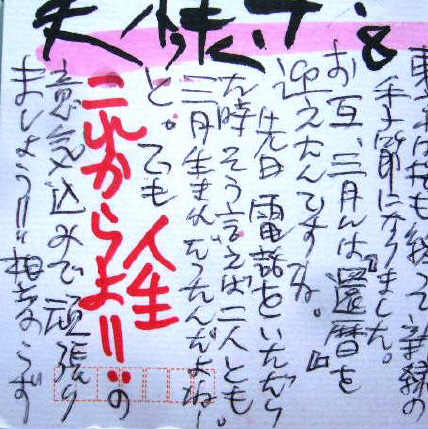 終って新緑の
季節になりました。
お互、三月には『還暦を
迎えたんですね。』
先日電話をいただい
た時そう言えば二人とも
三月生まれだったんだよね〜。
と。でも人生
これからよ!!の
意気込みで頑張り
ましょう!!相変らず